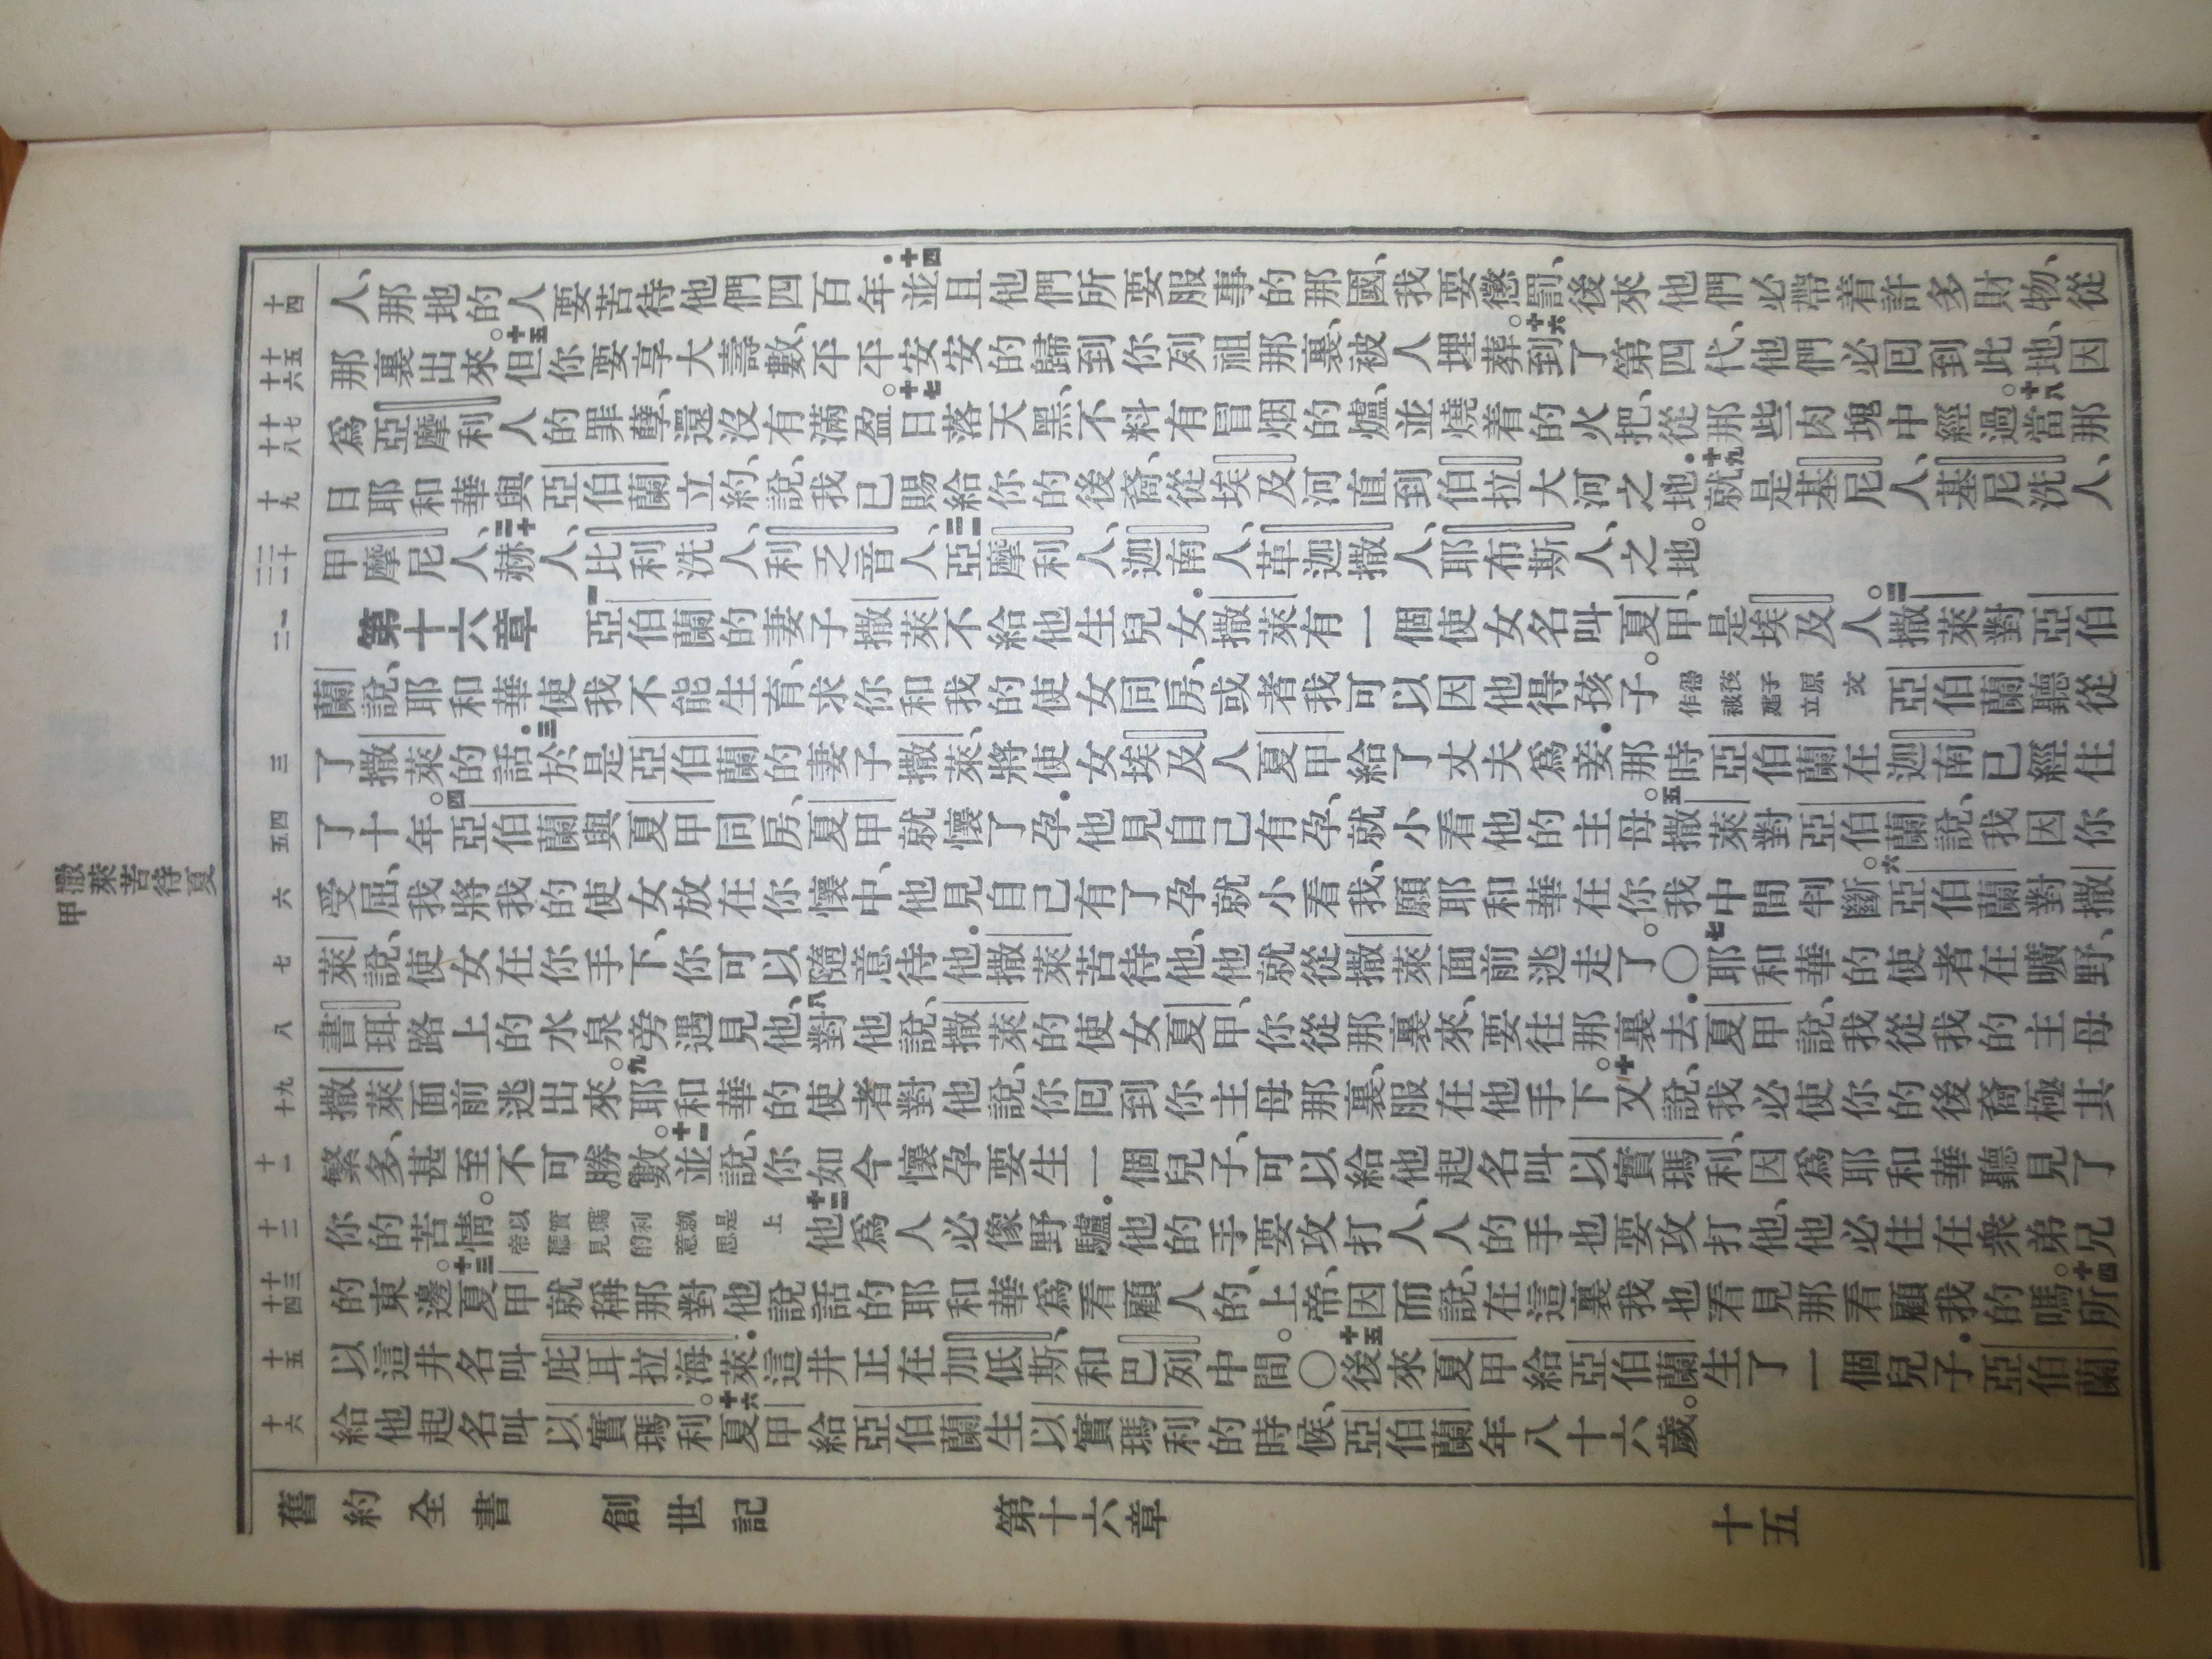 撒萊苦待夏
甲
十四
人、那地的人要苦待他們四百年.十四並且他們所要服事的那國、我要懲罰、後來他們必帶着許多財物、從
十五 十六
那裏出來。十五但你要享大壽數、平平安安的歸到你列祖那裏、被人埋葬。十六到了第四代、他們必回到此地、因
十七 十八
爲亞摩利人的罪孽、還沒有滿盈。十七日落天黑、不料有冒烟的爐、並燒着的火把、從那些肉塊中經過。十八當那
十九
日耶和華與亞伯蘭立約、說、我已賜給你的後裔、從埃及河直到伯拉大河之地.十九就是基尼人、基尼洗人、
二十 二一
甲摩尼人、二十赫人、比利洗人、利乏音人、二一亞摩利人、迦南人、革迦撒人、耶布斯人之地。
一 二
第十六章 一亞伯蘭的妻子撒萊不給他生兒女.撒萊有一個使女名叫夏甲、是埃及人。二撒萊對亞伯
蘭說、耶和華使我不能生育、求你和我的使女同房、或者我可以因他得孩子。得孩子原文作被建立亞伯蘭聽從
三
了撒萊的話.三於是亞伯蘭的妻子撒萊、將使女埃及人夏甲給了丈夫爲妾.那時亞伯蘭在迦南已經住
四 五
了十年。四亞伯蘭與夏甲同房、夏甲就懷了孕.他見自己有孕、就小看他的主母。五撒萊對亞伯蘭說、我因你
六
受屈、我將我的使女放在你懷中、他見自己有了孕就小看我、願耶和華在你我中間判斷。六亞伯蘭對撒
七
萊說、使女在你手下、你可以隨意待他.撒萊苦待他、他就從撒萊面前逃走了。〇七耶和華的使者在曠野、
八
書珥路上的水泉旁遇見他、八對他說、撒萊的使女夏甲、你從那裏來、要往那裏去.夏甲說、我從我的主母
九 十
撒萊面前逃出來。九耶和華的使者對他說、你回到你主母那裏、服在他手下。十又說、我必使你的後裔極其
十一
繁多、甚至不可勝數。十一並說、你如今懷孕要生一個兒子、可以給他起名叫以實瑪利、因爲耶和華聽見了
十二
你的苦情。以實瑪利就是上帝聽見的意思十二他爲人必像野驢.他的手要攻打人、人的手也要攻打他、他必住在衆弟兄
十三 十四
的東邊。十三夏甲就稱那對他說話的耶和華爲看顧人的上帝、因而說、在這裏我也看見那看顧我的嗎。十四所
十五
以這井名叫庇耳拉海萊.這井正在加低斯、和巴列中間。〇十五後來夏甲給亞伯蘭生了一個兒子.亞伯蘭
十六
給他起名叫以實瑪利。十六夏甲給亞伯蘭生以實瑪利的時候、亞伯蘭年八十六歲。
舊約全書 創世記 第十六章 十五